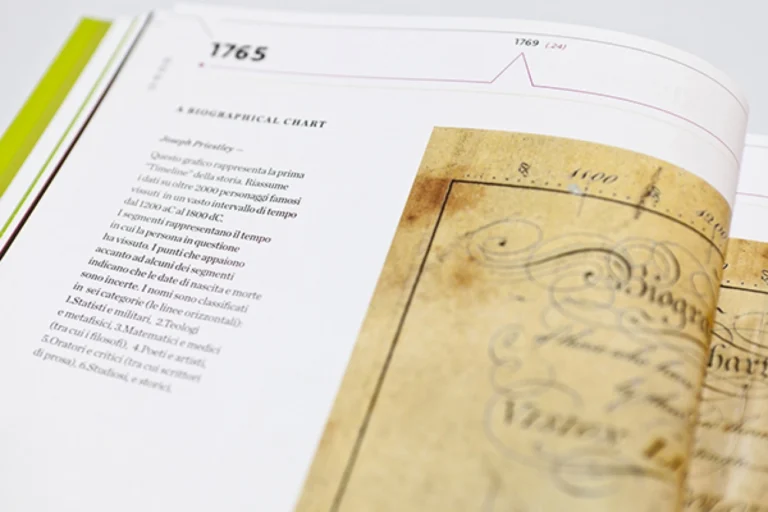 1765
1769 (24)
A BIOGRAPHICAL CHART
Joseph Priestley —
Questo grafico rappresenta la prima
"Timeline" della storia. Riassume
i dati su oltre 2000 personaggi famosi
vissuti in un vasto intervallo di tempo
dal 1200 aC al 1800 dC.
I segmenti rappresentano il tempo
in cui la persona in questione
ha vissuto. I punti che appaiono
accanto ad alcuni dei segmenti
indicano che le date di nascita e morte
sono incerte. I nomi sono classificati
in sei categorie (le linee orizzontali):
1.Statisti e militari, 2.Teologi
e metafisici, 3.Matematici e medici
(tra cui i filosofi), 4.Poeti e artisti,
5.Oratori e critici (tra cui scrittori
di prosa), 6.Studiosi, e storici.
§ 1100
Biogra
hart